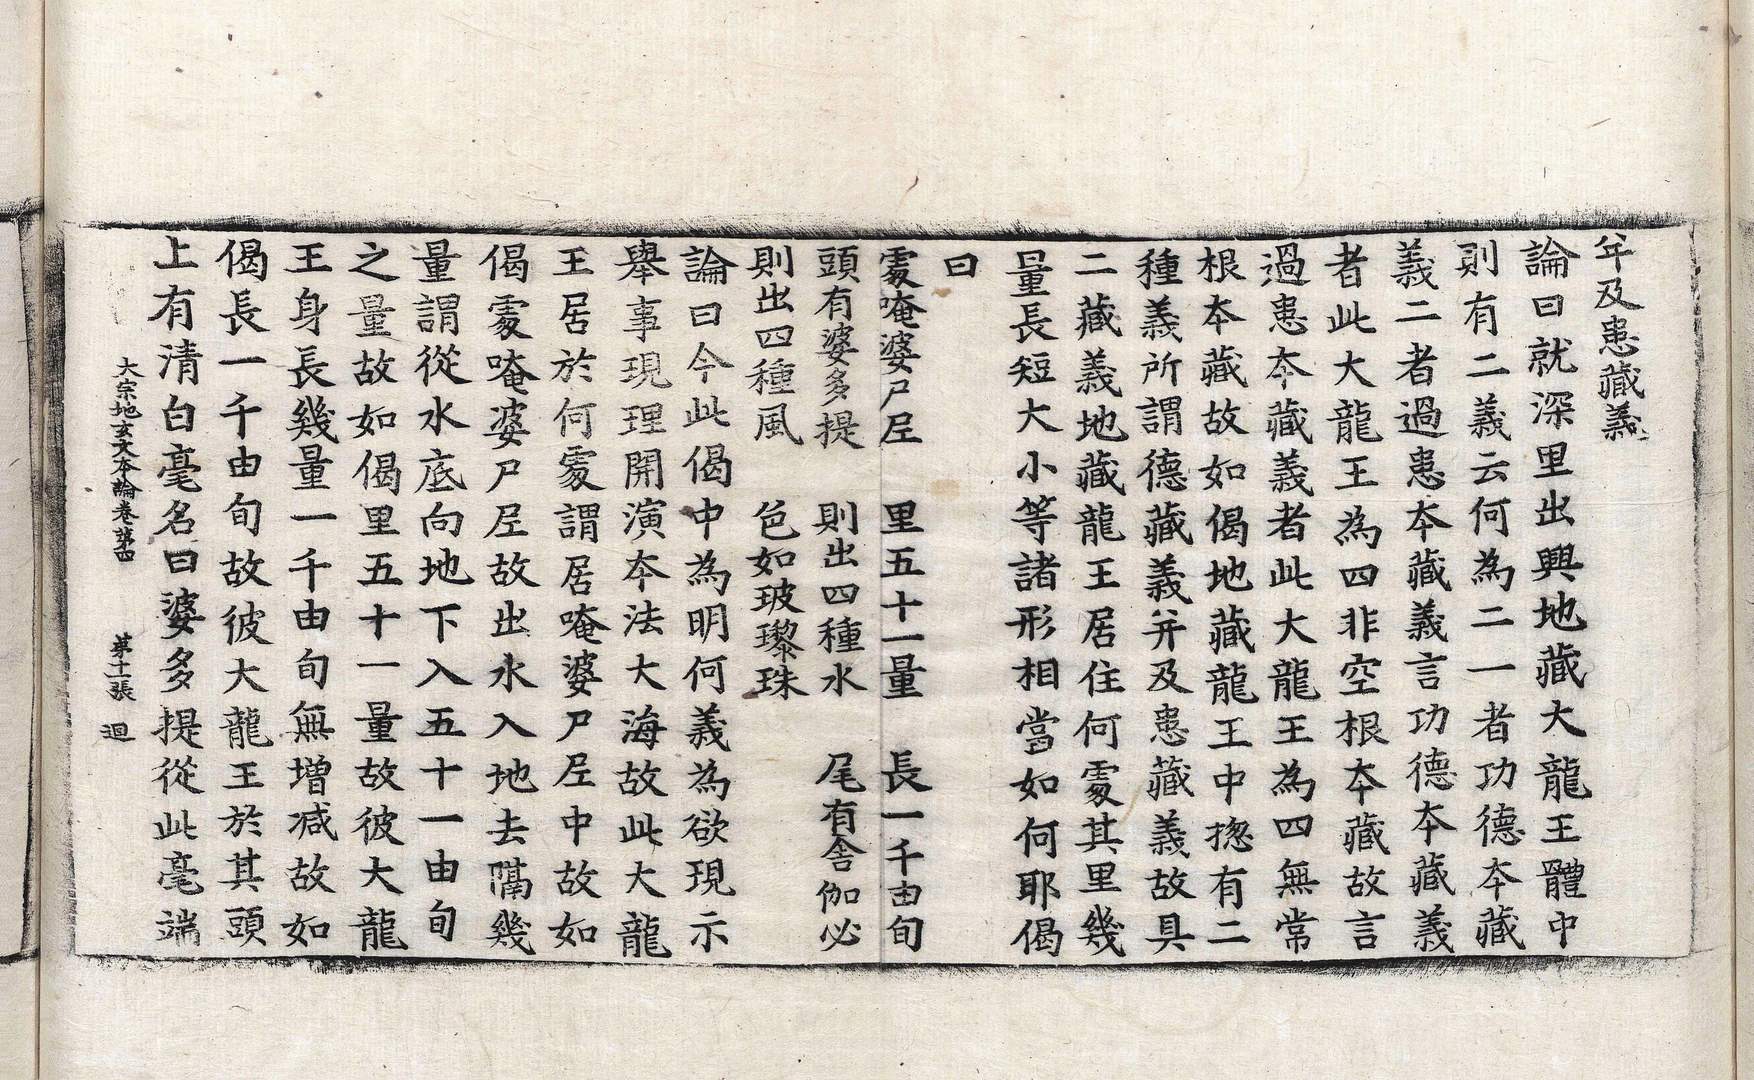 并及患藏義
論曰就深里出興地藏大龍王體中
則有二義云何為二一者功德本藏
義二者過患本藏義言功德本藏義
者此大龍王為四非空根本藏故言
過患本藏義者此大龍王為四無常
根本藏故如偈地藏龍王中摠有二
種義所謂德藏義并及患藏義故具
二藏義地藏龍王居住何處其里幾
量長短大小等諸形相當如何耶偈
曰
處唵婆尸𡰱　里五十一量　長一千由旬
頭有婆多提　則出四種水　尾有舍伽必
則出四種風　色如玻瓈珠
論曰今此偈中為明何義為欲現示
舉事現理開演本法大海故此大龍
王居於何處謂居唵婆尸𡰱中故如
偈處唵婆尸𡰱故出水入地去隔幾
量謂從水底向地下入五十一由旬
之量故如偈里五十一量故彼大龍
王身長幾量一千由旬無增減故如
偈長一千由旬故彼大龍王於其頭
上有清白毫名曰婆多提從此毫端
大宗地玄文本論卷第四　第十一張　迴